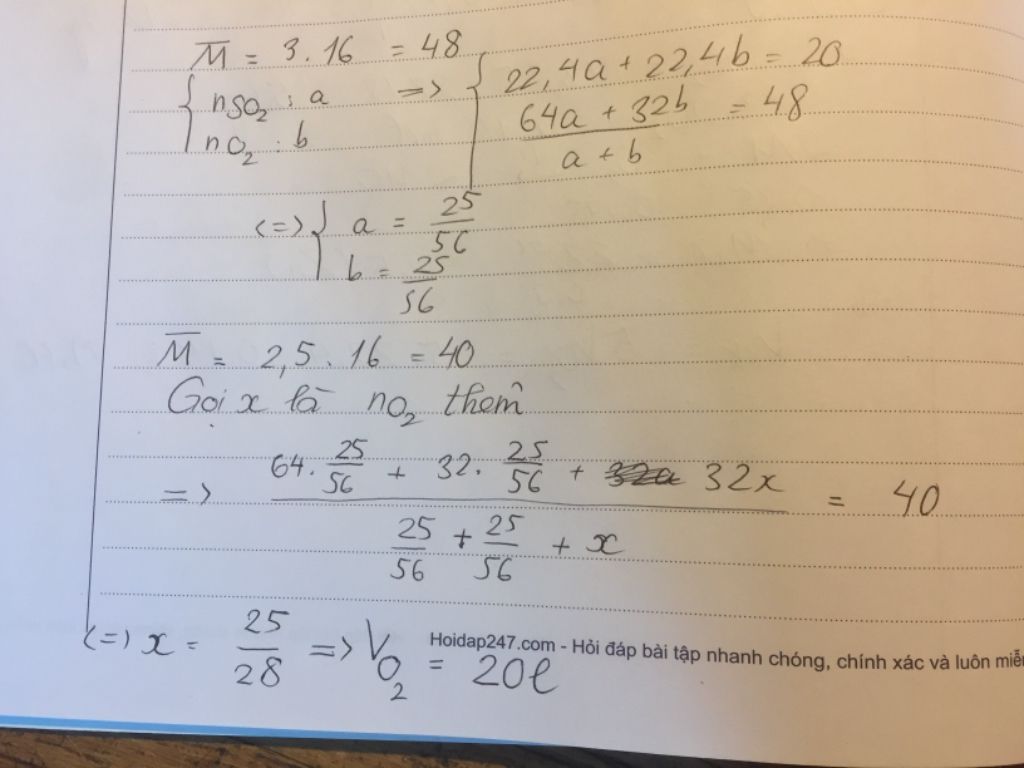 M̅ = 3.16 = 48
{ nSO₂ : a => { 22,4a + 22,4b = 20
nO₂ : b (64a + 32b)/(a + b) = 48
<=> { a = 25/56
b = 25/56
M̅ = 2,5 . 16 = 40
Gọi x là nO₂ thêm
=> (64. 25/56 + 32. 25/56 + 32x)/(25/56 + 25/56 + x) = 40
<=> x = 25/28 => V O₂ = 20l
Hoidap247.com - Hỏi đáp bài tập nhanh chóng, chính xác và luôn miễn